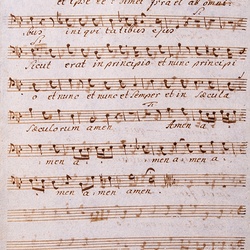 et ipse redimet Israel ab omni-
bus iniquitatibus ejus
Sicut erat in principio et nunc principi
o et nunc et nunc et semper et in sæcula
sæculorum amen Amen a
men a men a men
men amen amen.